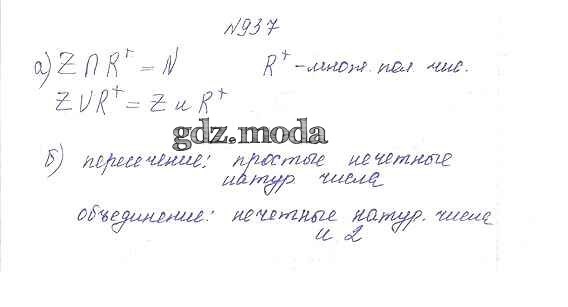 №937
а) Z ∩ R⁺ = N R⁺ - множ. пол. чис.
Z U R⁺ = Z и R⁺
gdz.moda
б) пересечение: простые нечетные
натур. числа
объединение: нечетные натур. числа
и 2